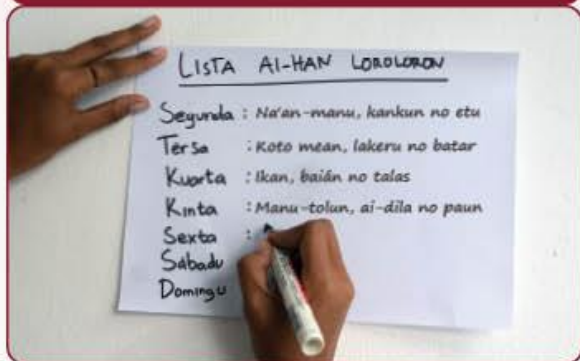 LISTA AI-HAN LOROLORON
Segunda : Na'an-manu, kankun no etu
Tersa : Koto mean, lakeru no batar
Kuarta : Ikan, baián no talas
Kinta : Manu-tolun, ai-dila no paun
Sexta :
Sabadu
Domingu